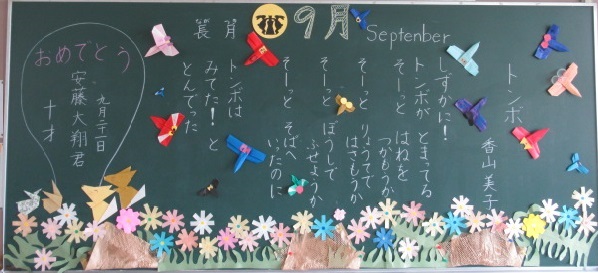 長月 9月 Septenber
トンボ
香山美子
しずかに!
トンボが とまってる
そーっと はねを
つかもうか
そーっと りょうてで
はさもうか
そーっと ぼうしで
ふせようか
そーっと そばへ
いったのに
トンボは
みてた! と
とんでった
おめでとう
九月二十一日
安藤大翔君
十才